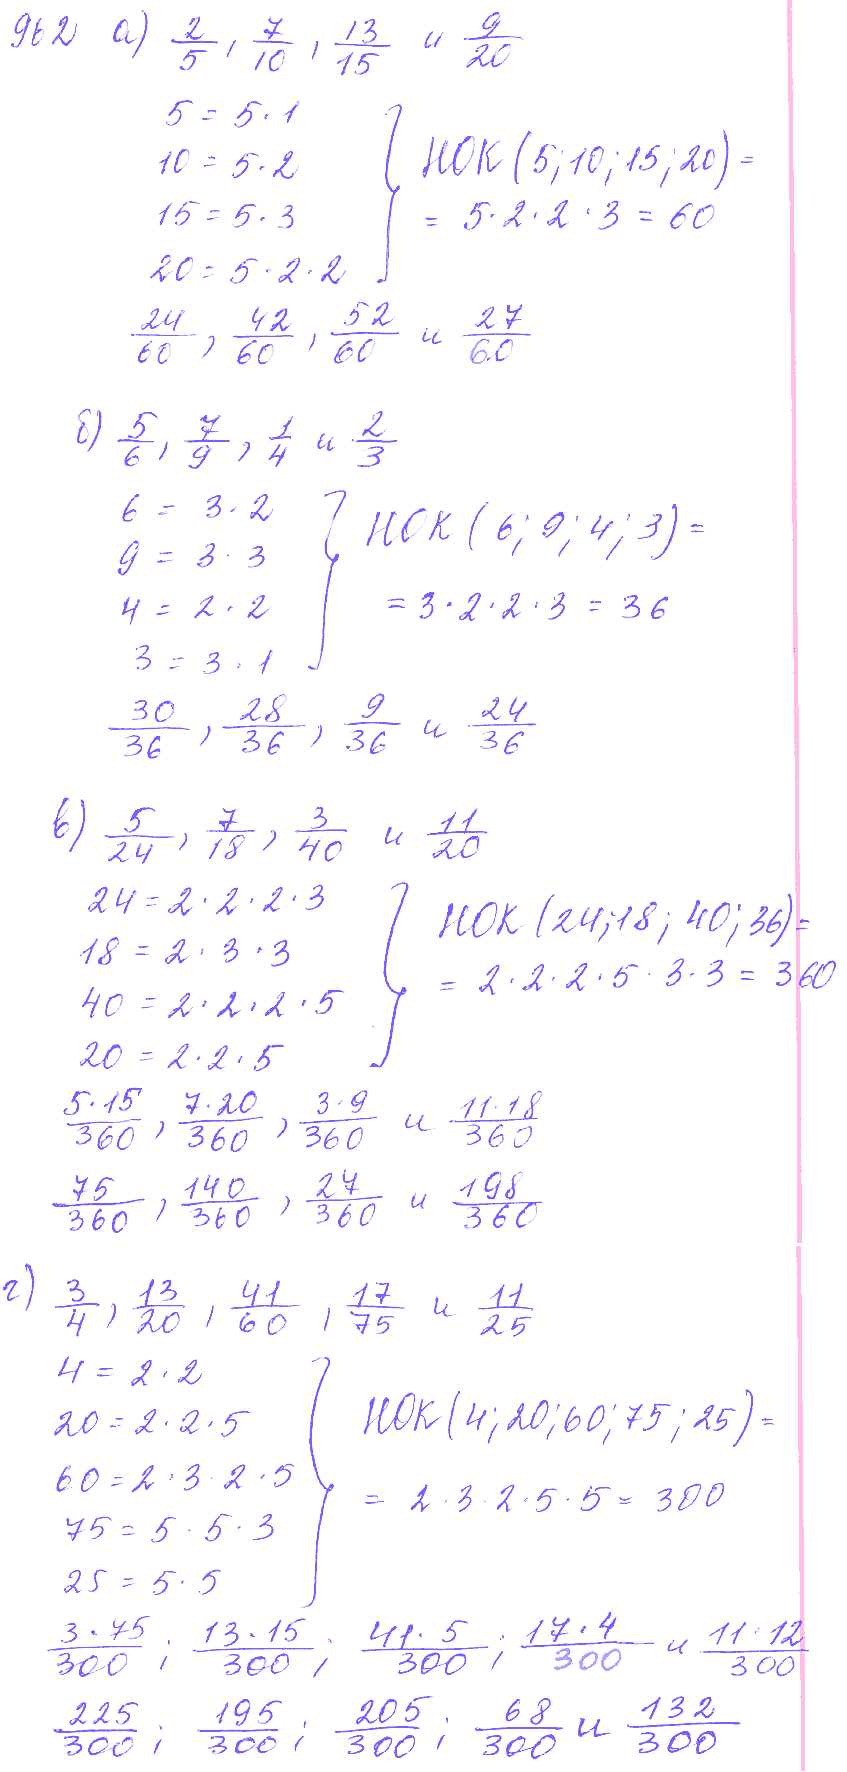 962 а) 2/5, 7/10, 13/15 и 9/20
5 = 5·1
10 = 5·2
15 = 5·3
20 = 5·2·2
НОК (5; 10; 15; 20) =
= 5·2·2·3 = 60
24/60, 42/60, 52/60 и 27/60
б) 5/6, 7/9, 1/4 и 2/3
6 = 3·2
9 = 3·3
4 = 2·2
3 = 3·1
НОК (6; 9; 4; 3) =
= 3·2·2·3 = 36
30/36, 28/36, 9/36 и 24/36
в) 5/24, 7/18, 3/40 и 11/20
24 = 2·2·2·3
18 = 2·3·3
40 = 2·2·2·5
20 = 2·2·5
НОК (24; 18; 40; 36) =
= 2·2·2·5·3·3 = 360
5·15/360, 7·20/360, 3·9/360 и 11·18/360
75/360, 140/360, 27/360 и 198/360
г) 3/4, 13/20, 41/60, 17/75 и 11/25
4 = 2·2
20 = 2·2·5
60 = 2·3·2·5
75 = 5·5·3
25 = 5·5
НОК (4; 20; 60; 75; 25) =
= 2·3·2·5·5 = 300
3·75/300; 13·15/300; 41·5/300; 17·4/300 и 11·12/300
225/300; 195/300; 205/300; 68/300 и 132/300